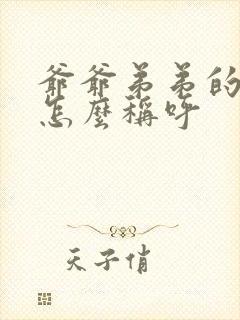 爺爺弟弟的
怎麼稱呼
天子俏